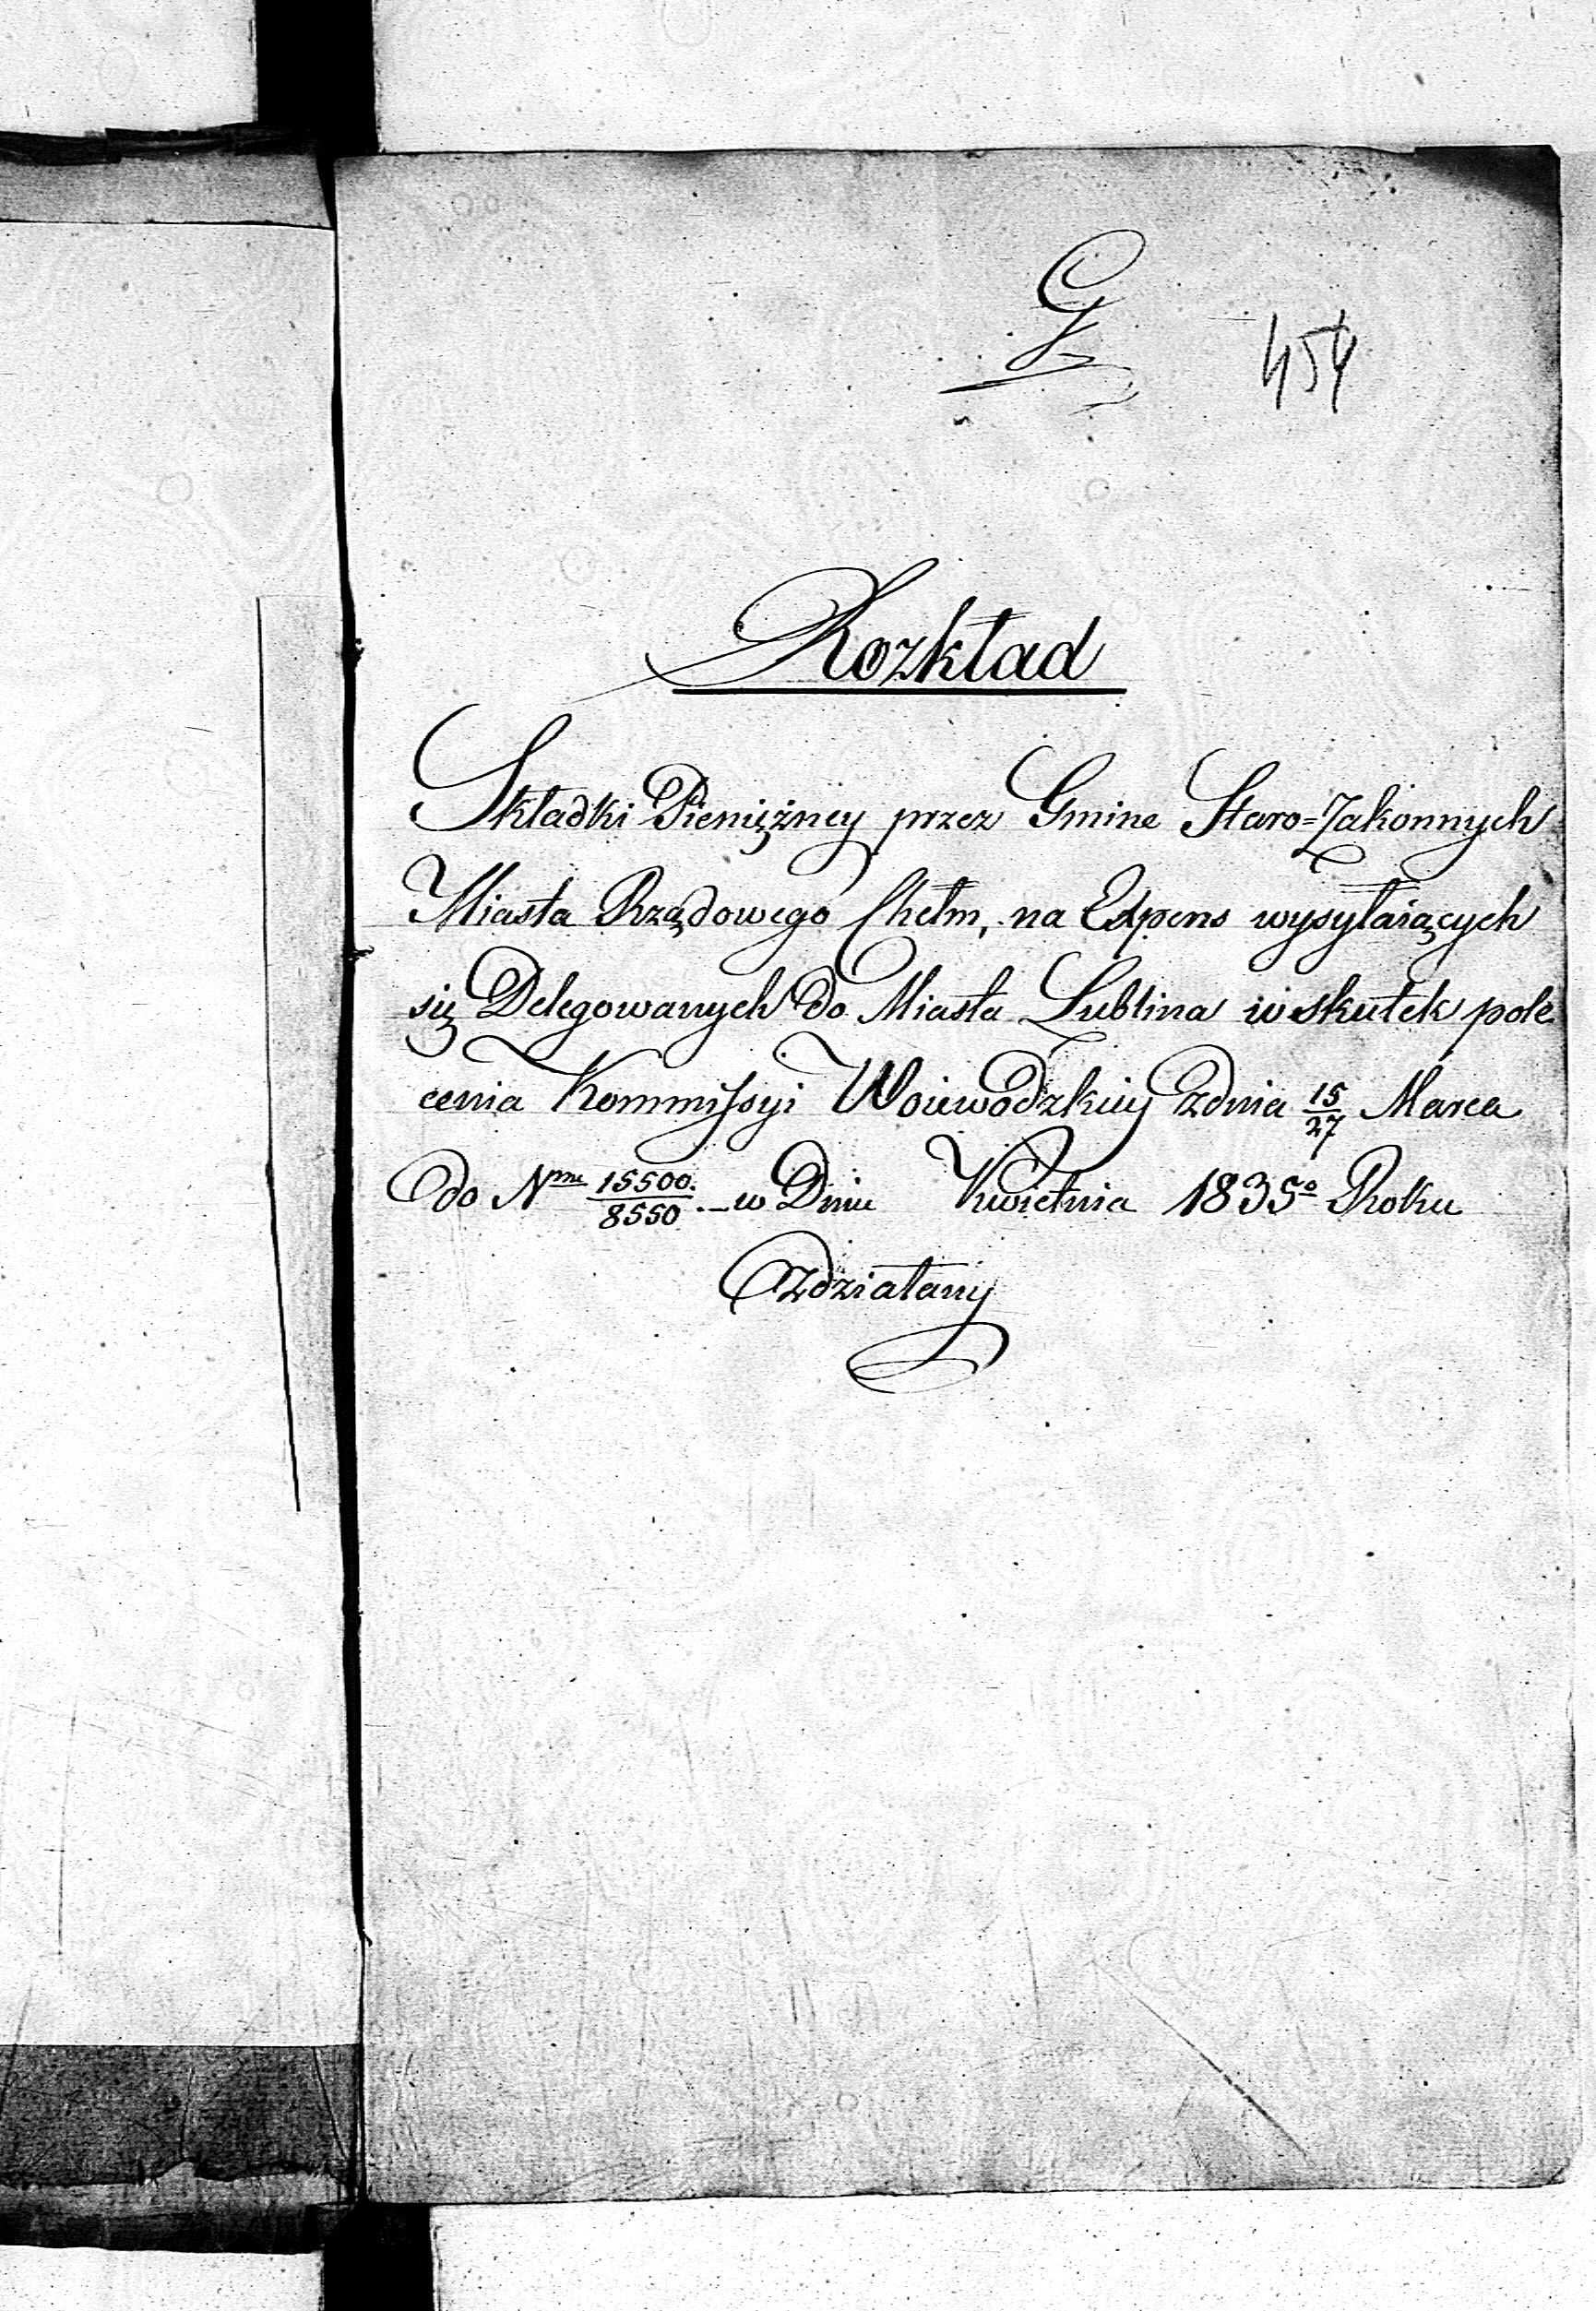 G
454
Rozkład
Składki Pieniężney przez Gmine Staro=Zakonnych
Miasta Rządowego Chełm, na Expens wysyłaiących
się Delegowanych do Miasta Lublina w skutek pole
cenia Kommissyi Woiewodzkiey z dnia 15/27 Marca
do Nru 15500/8550 .– w Dniu Kwietnia 1835o Roku
zdziałany